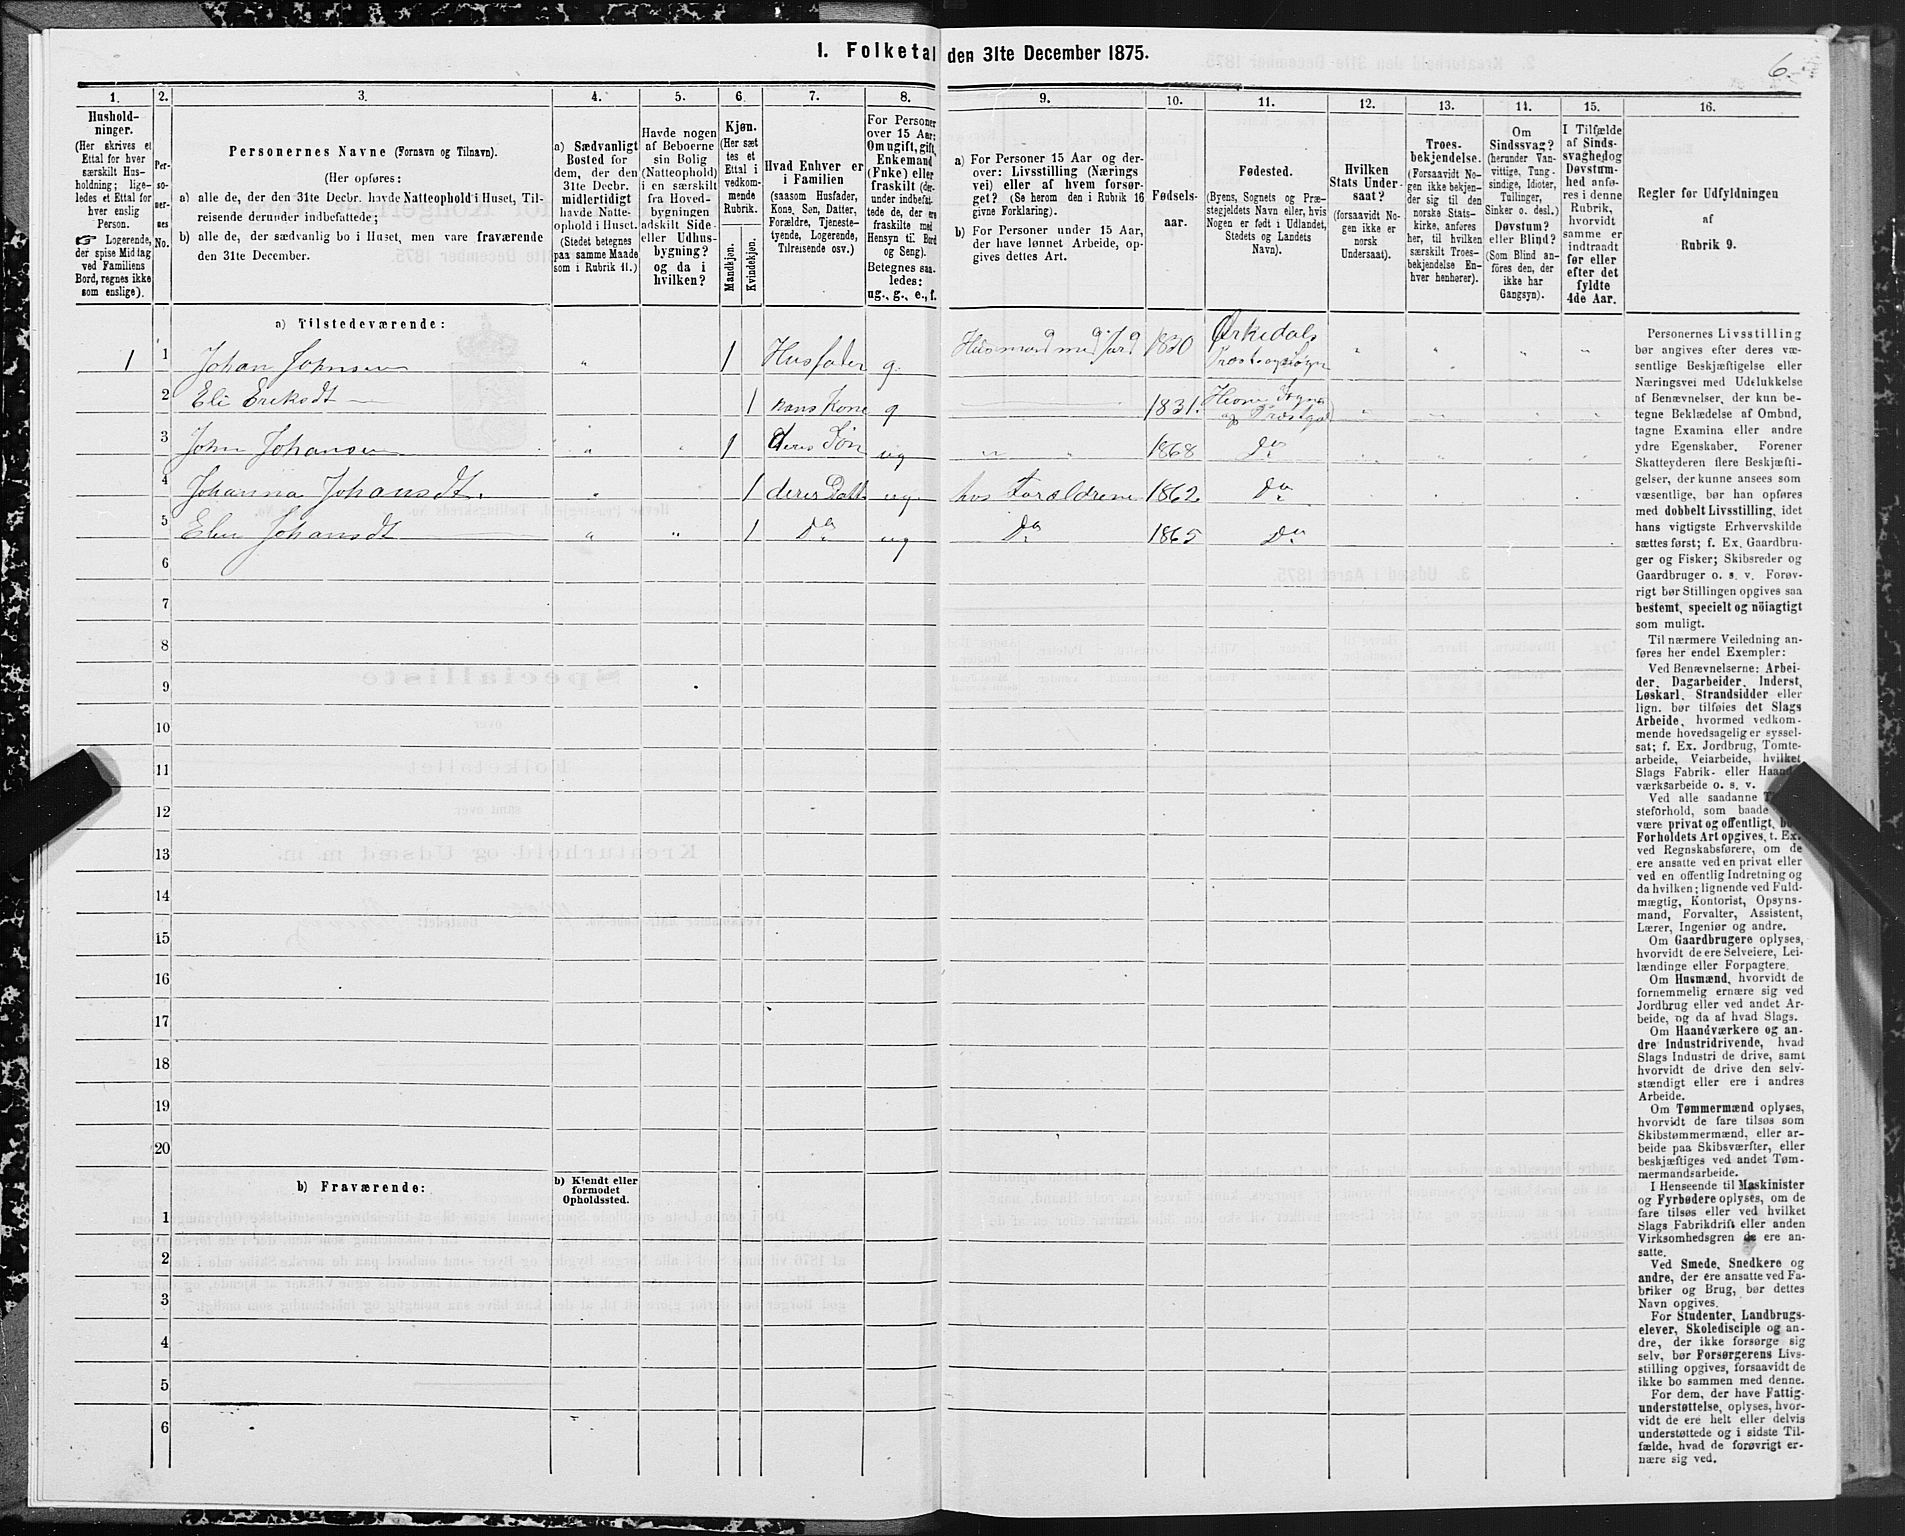 I. Folketal den 31te December 1875.
6.
1.
Hushold-
ninger.
(Her skrives et
Ettal for hver
særskilt Hus-
holdning; lige-
ledes et Ettal for
hver enslig
Person.
☞ Logerende,
der spise Middag
ved Familiens
Bord, regnes ikke
som enslige).
2.
Per-
so-
ner-
nes
No.
3.
Personernes Navne (Fornavn og Tilnavn).
(Her opføres:
a) alle de, der den 31te Decbr. havde Natteophold i Huset, Til-
reisende derunder indbefattede;
b) alle de, der sædvanlig bo i Huset, men vare fraværende
den 31te December.
4.
a) Sædvanligt
Bosted for
dem, der den
31te Decbr.
midlertidigt
havde Natte-
ophold i Huset.
(Stedet betegnes
paa samme Maade
som i Rubrik 11.)
5.
Havde nogen
af Beboerne
sin Bolig
(Natteophold)
i en særskilt
fra Hoved-
bygningen
adskilt Side-
eller Udhus-
bygning?
og da i
hvilken?
6.
Kjøn.
(Her sæt-
tes et
Ettal i
vedkom-
mende
Rubrik.
Mandkjøn.
Kvindekjøn.
7.
Hvad Enhver er
i Familien
(saasom Husfader,
Kone, Søn, Datter,
Forældre, Tjeneste-
tyende, Logerende,
Tilreisende osv.)
8.
For Personer
over 15 Aar:
Om ugift, gift,
Enkemand
(Enke) eller
fraskilt (der-
under indbefat-
tede de, der ere
fraskilte med
Hensyn til Bord
og Seng).
Betegnes saa-
ledes:
ug., g., e., f.
9.
a) For Personer 15 Aar og der-
over: Livsstilling (Nærings-
vei) eller af hvem forsør-
get? (Se herom den i Rubrik 16
givne Forklaring).
b) For Personer under 15 Aar,
der have lønnet Arbeide, op-
gives dettes Art.
10.
Fødsels-
aar.
11.
Fødested.
(Byens, Sognets og Præ-
stegjeldets Navn eller, hvis
Nogen er født i Udlandet,
Stedets og Landets
Navn).
12.
Hvilken
Stats Under-
saat?
(forsaavidt No-
gen ikke er
norsk
Undersaat).
13.
Troes-
bekjendelse.
(Forsaavidt No-
gen ikke bekjen-
der sig til den
norske Stats-
kirke, anføres
her, til hvilken
særskilt Troes-
bekjendelse En-
hver henhører).
14.
Om
Sindssvag?
(herunder Van-
vittige, Tung-
sindige, Idioter,
Tullinger,
Sinker o. desl.)
Døvstum?
eller Blind?
(Som Blind an-
føres den, der
ikke har
Gangsyn).
15.
I Tilfælde
af Sinds-
svaghed og
Døvstum-
hed anfø-
res i denne
Rubrik,
hvorvidt
samme er
indtraadt
før eller
efter det
fyldte
4de Aar.
16.
Regler for Udfyldningen
af
Rubrik 9.
a) Tilstedeværende:
1 1 Johan Johnsen " 1 Husfader g. Husmand med Jord 1830 Ørkedals Præstegjeld " " " "
2 Eli Eriksdt 1 hans Kone g 1831. Hevne Sogn og Præstgd " " " "
3 John Johansen " " 1 deres Søn ug " " 1868 Do " " " "
4 Johanna Johansdt. " 1 deres Datt. ug. hos Forældrene 1862. Do " " "
5 Elen Johansdt " " 1 Do ug Do 1865 Do
6
7
8
9
10
11
12
13
14
15
16
17
18
19
20
b) Fraværende:
b) Kjendt eller
formodet
Opholdssted.
1
2
3
4
5
6
Personernes Livsstilling
bør angives efter deres væ-
sentlige Beskjæftigelse eller
Næringsvei med Udelukkelse
af Benævnelser, der kun be-
tegne Beklædelse af Ombud,
tagne Examina eller andre
ydre Egenskaber. Forener
Skatteyderen flere Beskjæfti-
gelser, der kunne ansees som
væsentlige, bør han opføres
med dobbelt Livsstilling, idet
hans vigtigste Erhvervskilde
sættes først; f. Ex. Gaardbru-
ger og Fisker; Skibsreder og
Gaardbruger o. s. v. Forøv-
rigt bør Stillingen opgives saa
bestemt, specielt og nöiagtigt
som muligt.
Til nærmere Veiledning an-
føres her endel Exempler:
Ved Benævnelserne: Arbei-
der, Dagarbeider, Inderst,
Løskarl, Strandsidder eller
lign. bør tilføies det Slags
Arbeide, hvormed vedkom-
mende hovedsagelig er syssel-
sat; f. Ex. Jordbrug, Tomte-
arbeide, Veiarbeide, hvilket
Slags Fabrik- eller Haand-
værksarbeide o. s. v.
Ved alle saadanne
steforhold, som baade
være privat og offentlig,
Forholdets Art opgives, t. Ex.
ved Regnskabsførere, om de
ere ansatte ved en privat eller
ved en offentlig Indretning og
da hvilken; lignende ved Fuld-
mægtig, Kontorist, Opsyns-
mand, Forvalter, Assistent,
Lærer, Ingeniør og andre.
Om Gaardbrugere oplyses,
hvorvidt de ere Selveiere, Lei-
lændinge eller Forpagtere.
Om Husmænd, hvorvidt de
fornemmelig ernære sig ved
Jordbrug eller ved andet Ar-
beide, og da af hvad Slags.
Om Haandværkere og an-
dre Industridrivende, hvad
Slags Industri de drive, samt
hvorvidt de drive den selv-
stændigt eller ere i andres
Arbeide.
Om Tømmermænd oplyses,
hvorvidt de fare tilsøs som
Skibstømmermænd, eller ar-
beide paa Skibsværfter, eller
beskjæftiges ved andet Tøm-
mermandsarbeide.
I Henseende til Maskinister
og Fyrbødere oplyses, om de
fare tilsøs eller ved hvilket
Slags Fabrikdrift eller anden
Virksomhedsgren de ere an-
satte.
Ved Smede, Snedkere og
andre, der ere ansatte ved Fa-
briker og Brug, bør dettes
Navn opgives.
For Studenter, Landbrugs-
elever, Skoledisciple og an-
dre, der ikke forsørge sig
selv, bør Forsørgerens Livs-
stilling opgives, forsaavidt de
ikke bo sammen med denne.
For dem, der have Fattig-
understøttelse, oplyses, hvor-
vidt de ere helt eller delvis
understøttede og i sidste Til-
fælde, hvad de forøvrigt er-
nære sig ved.